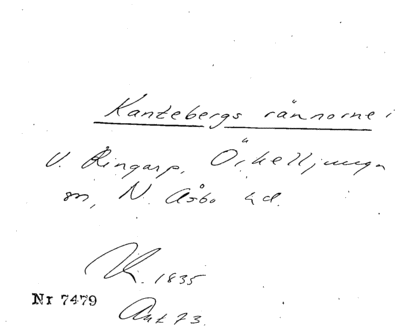 Kantebergs rännorne i
V. Ringarp, Örkelljunga
sn, N. Åsbo hd.
K. 1835
Nr 7479
Ant 73.